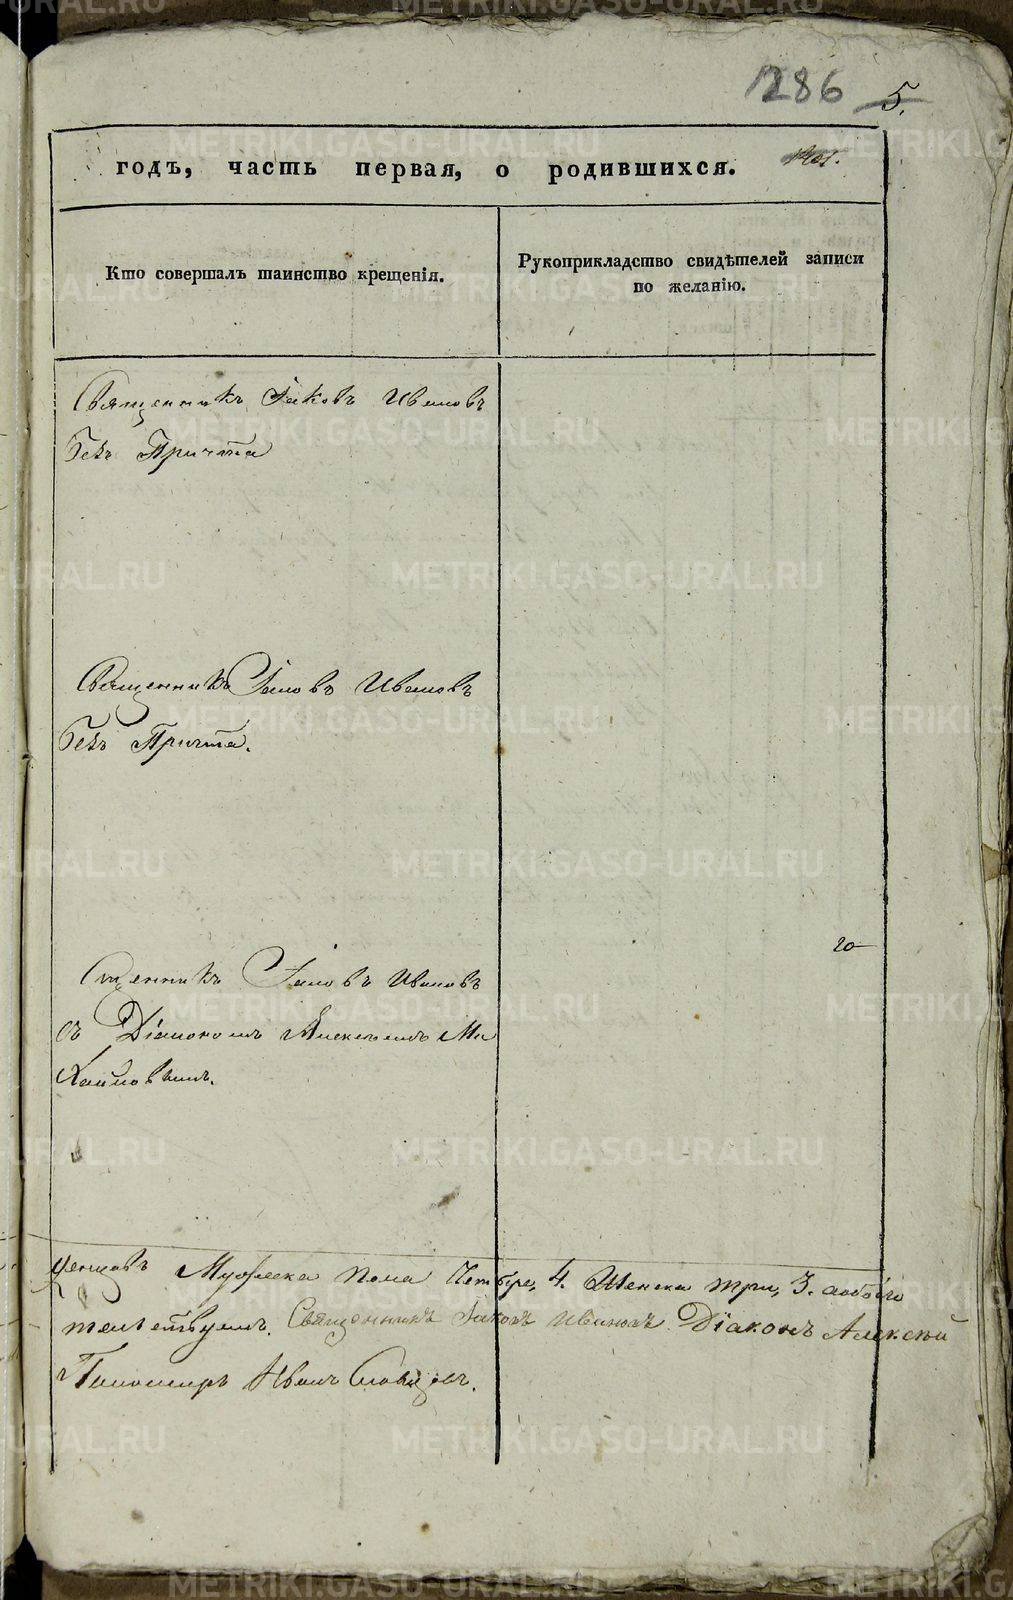 286 5.
годъ, часть первая, о родившихся.
Кто совершалъ таинство крещенія.
Рукоприкладство свидѣтелей записи
по желанію.
Священникъ Іаковъ Ивановъ
безъ Причта
Священникъ Іаковъ Ивановъ
безъ Причта.
Іаковъ Ивановъ
съ Діакономъ Алексѣемъ Ми
хайловымъ.
20
Мужеска пола Четыре, 4. Женска три, 3.
Священникъ Іаковъ Ивановъ Діаконъ Алексѣй
Пономарь Иванъ
METRIKI.GASO-URAL.RU